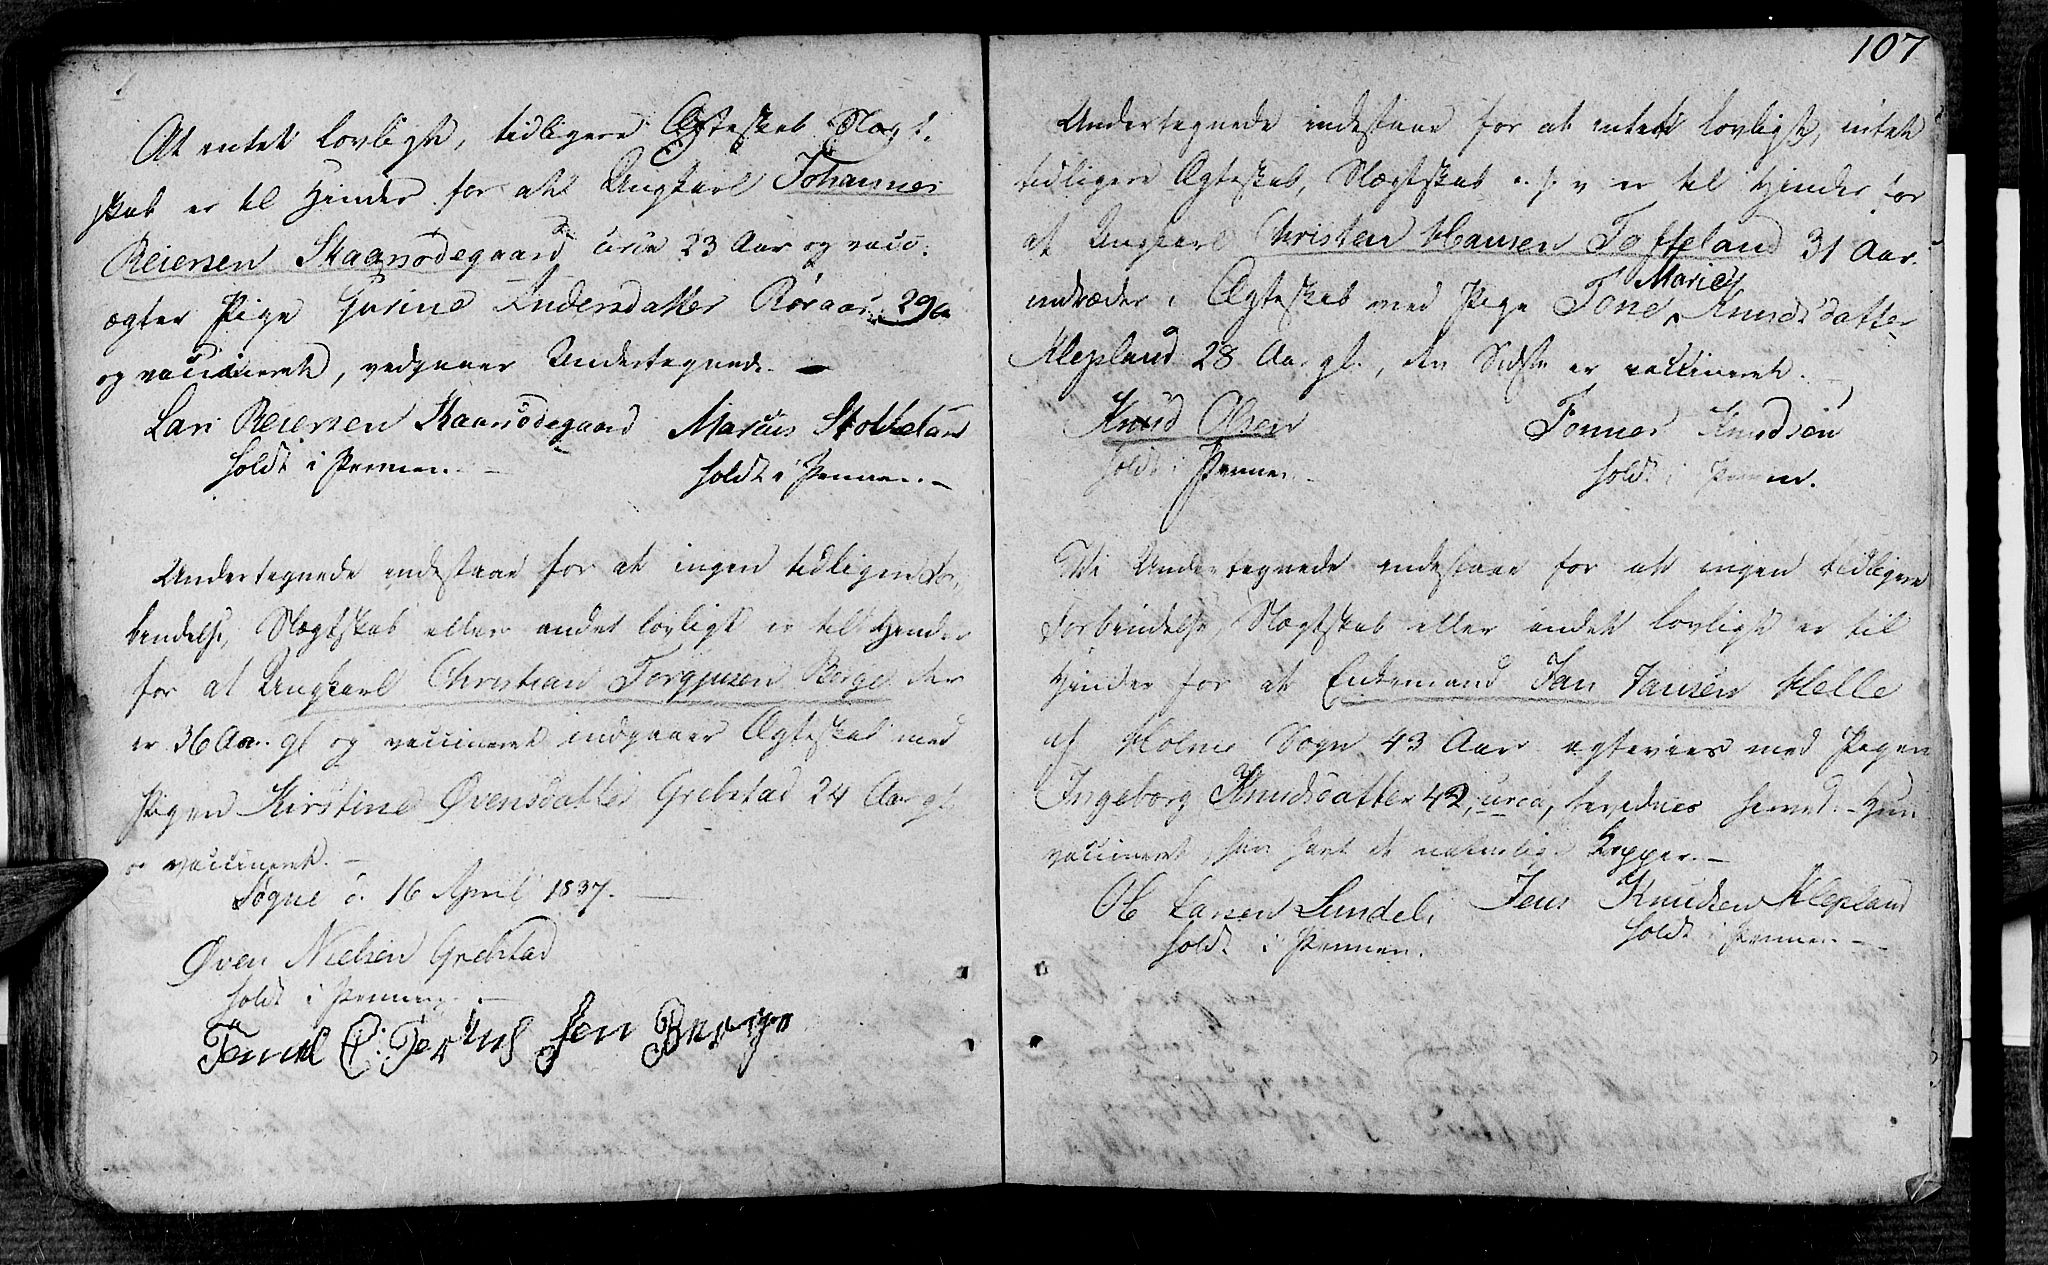 At intet lovligt, tidligere Ægteskab Slægt-
skab er til Hinder for at Ungkarl Johannes
Reiersen Skaansødegaard circa 23 Aar og vacc:
ægter Pige Gurine Andersdatter Røraas 29 a
og vaccineret, vedgaaer Undertegnede. —
Lars Reiersen Skaansødegaard Marcus Stokkeland
holdt i Pennen. — holdt i Pennen. —
Undertegnede indestaae for at ingen tidligere For-
bindelse, Slægtskab eller andet lovligt er til Hinder
for at Ungkarl Christian Torgjusen Berge der
er 36 Aar gl og vaccineret indgaaer Ægteskab med
Pigen Kirstine Øvensdatter Grebstad 24 Aar gl
og vaccineret. —
Søgne d. 16 April 1837. —
Øven Nielsen Grebstad
holdt i Pennen. —
107
Undertegnede indestaae for at intet lovligt, intet
tidligere Ægteskab, Slægtskab o. s. v er til Hinder for
at Ungkarl Christen Hansen Toffeland 31 Aar
indtræder i Ægteskab med Pige Tone Marie Knudsdatter
Klepland 28 Aar gl., den Sidste er vaccineret. —
Knud Olsen Tonnes Knudsen
holdt i Pennen. holdt i Pennen.
Vi Undertegnede indestaae for at ingen tidligere
Forbindelse, Slægtskab eller andet lovligt er til
Hinder for at Enkemand Jan Jansen Helle
af Holme Sogn 43 Aar ægtevies med Pigen
Ingeborg Knudsdatter 42, circa, bevidnes herved. – Hun
vaccineret, han havt de naturlige Kopper. —
Ole Larsen Lundel Jens Knudsen Klepland
holdt i Pennen. holdt i Pennen. —